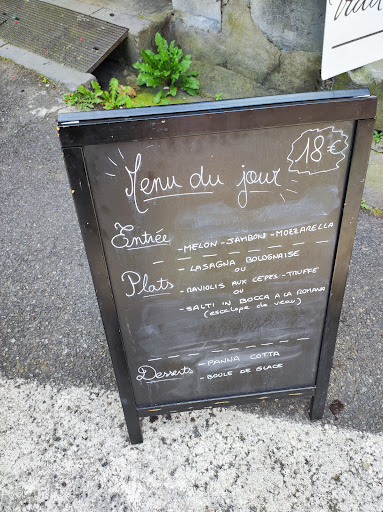 Menu du jour
18€
Entrée
- MELON - JAMBON - MOZZARELLA
Plats
- LASAGNA BOLOGNAISE
ou
- RAVIOLIS AUX CÈPES - TRUFFE
ou
- SALTI IN BOCCA A LA ROMANA
(escalope de veau)
Desserts
- PANNA COTTA
- BOULE DE GLACE